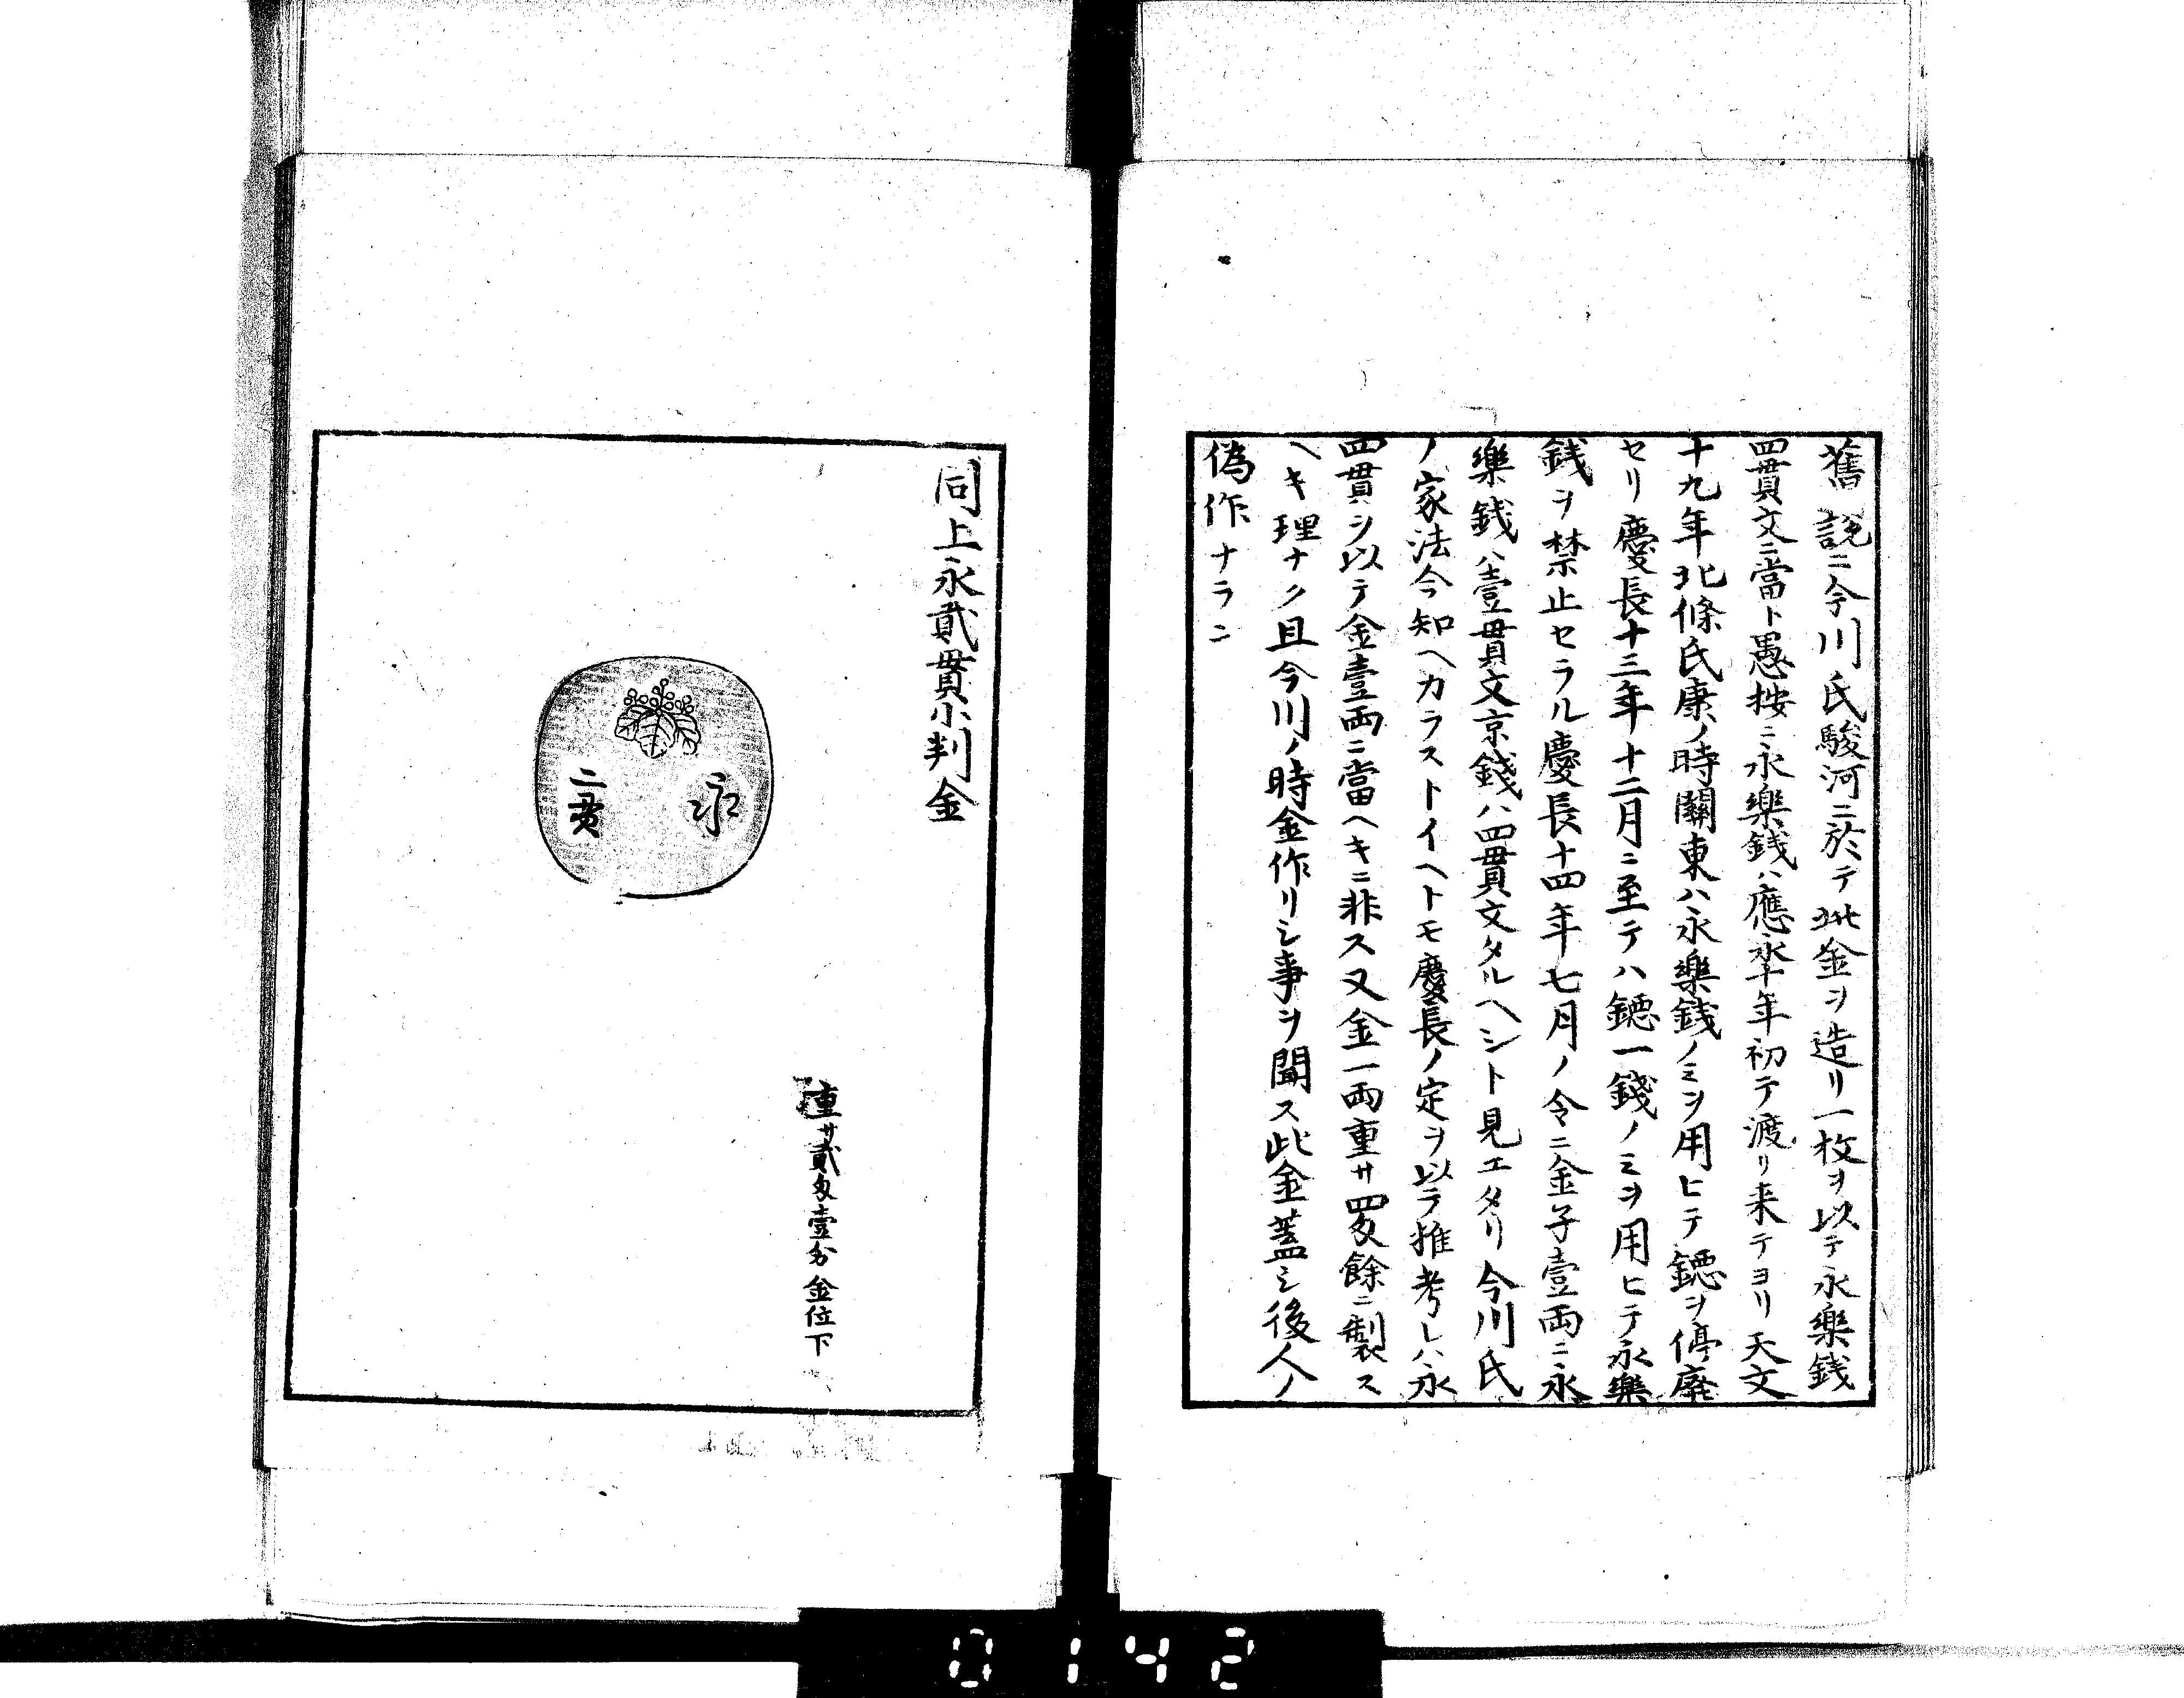 舊説ニ今川氏駿河ニ於テ此金ヲ造リ一枚ヲ以テ永樂銭
四貫文ニ當ト愚按ニ永樂銭ハ應永十年初テ渡リ来テヨリ天文
十九年北條氏康ノ時關東ハ永樂銭ノミヲ用ヒテ鐚ヲ停廃
セリ慶長十三年十二月ニ至テハ鐚一錢ノミヲ用ヒテ永樂
銭ヲ禁止セラル慶長十四年七月ノ令ニ金子壹両ニ永
樂銭ハ壹貫文京錢ハ四貫文タルヘシト見エタリ今川氏
ノ家法今知ヘカラストイヘトモ慶長ノ定ヲ以テ推考レハ永
四貫ヲ以テ金壹両ニ當ヘキニ非ス又金一両重サ四匁餘ニ製ス
ヘキ理ナク且今川ノ時金作リシ事ヲ聞ス此金蓋シ後人ノ
偽作ナランニ
同上永貳貫小判金
永
二貫
重サ貳匁壹分金位下
0142